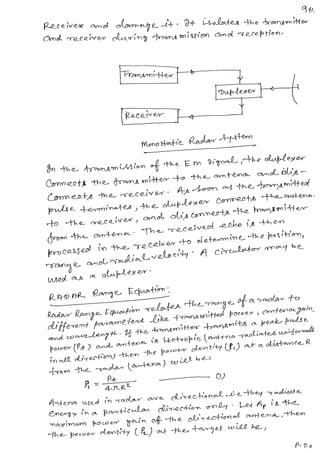 Receiver and damage it. It isolates the transmitter
and receiver during transmission and reception.
Transmitter
Duplexer
Receiver
Monostatic Radar System
In the transmission of the EM signal, the duplexer
connects the transmitter to the antenna and dis-
connects the receiver. As soon as the transmitted
pulse terminates, the duplexer connects the antenna
to the receiver, and disconnects the transmitter
from the antenna. The received echo is then
processed in the receiver to determine the position,
range and radial velocity. A circulator may be
used as a duplexer.
RADAR Range Equation:
Radar Range Equation relates the range of a radar to
different parameters like transmitted power, antenna gain,
and wavelength. If the transmitter transmits a peak pulse
power (Pt) and antenna is isotropic (antenna radiates uniformly
in all direction) then the power density (P1) at a distance R
from the radar (antenna) will be:
P1 = Pt / 4πR² (1)
Antena used in radar are directional i.e they radiate
Energy in a particular direction only. Let Ap is the
maximum power gain of the directional antena, then
the power density (P2) at the target will be,
P.T.O